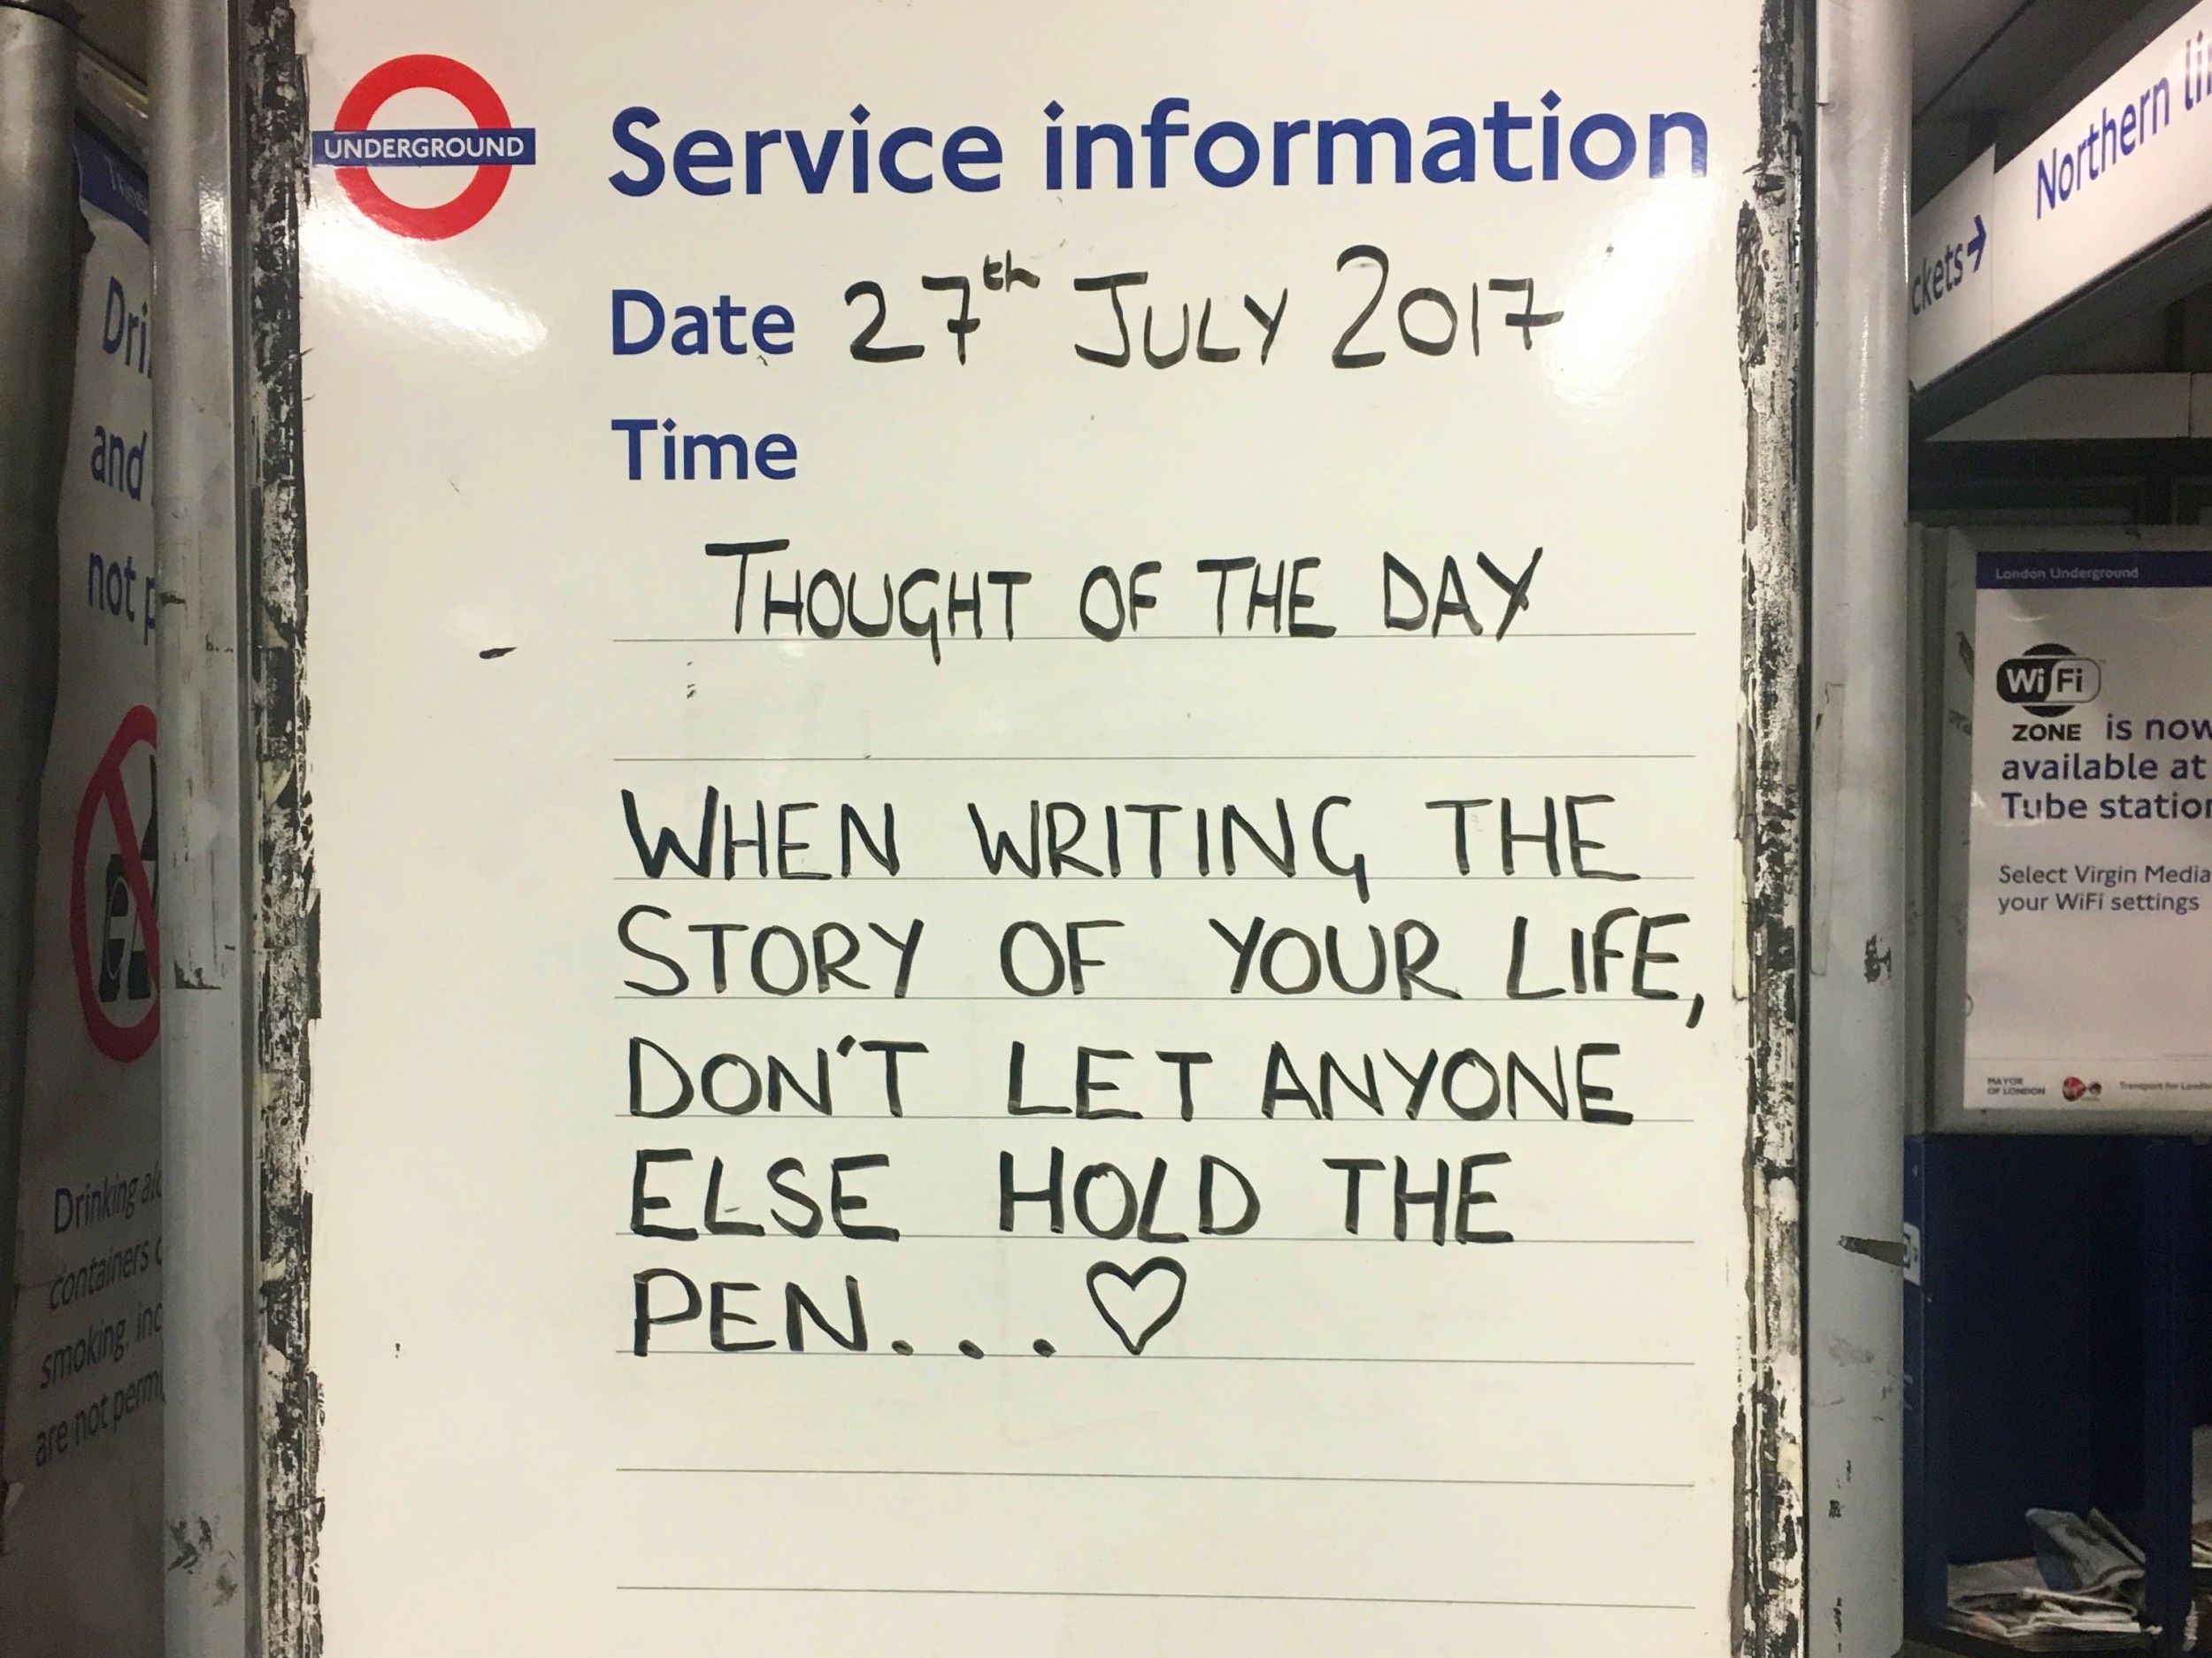 UNDERGROUND
Service information
Date 27th JULY 2017
Time
THOUGHT OF THE DAY
WHEN WRITING THE
STORY OF YOUR LIFE,
DON'T LET ANYONE
ELSE HOLD THE
PEN... ♡
and
not
Drinking
containers
smoking,
are not
Northern
London Underground
WiFi
ZONE is now
available at
Tube
Select Virgin Media
your WiFi settings
MAYOR
OF LONDON
Transport for